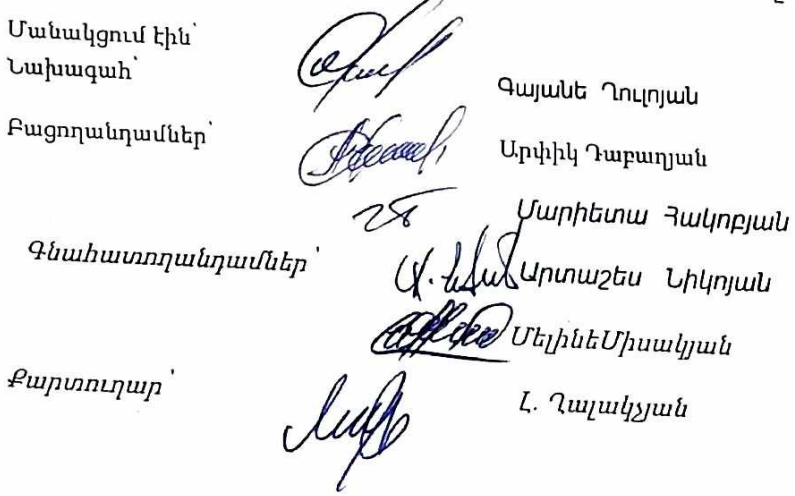 Մանակցում էին՝
Նախագահ՝ Գայանե Ղուլոյան
Բացողանդամներ՝ Արփիկ Դաբաղյան
Մարիետա Հակոբյան
Գնահատողանդամներ՝ Արտաշես Նիկոյան
ՄելինեՄիսակյան
Քարտուղար՝ Լ. Ղալակչյան